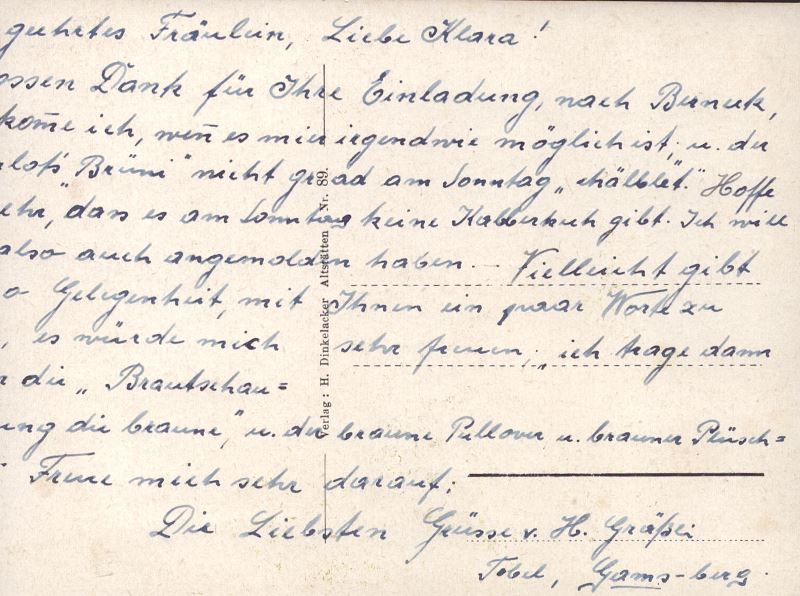 geehrtes Fräulein, Liebe Klara!
ossen Dank für Ihre Einladung, nach Berneck,
kom̄e ich, wen̄ es mir irgendwie möglich ist, u. der
"Brüni" nicht grad am Sonntag „chälblet." Hoffe
ehr, dass es am Sonntag keine Kalberkuh gibt. Ich will
also auch angemolden haben. – Vielleicht gibt
o Gelegenheit, mit Ihnen ein paar Worte zu
, es würde mich sehr freuen, „ich trage dann
r die „Brautschau=
ung die braune", u. der braune Pullover u. brauner Plüsch=
Freue mich sehr darauf;
Die Liebsten Grüsse v. H.
Tobel, Gams-berg.
Verlag: H. Dinkelacker Altstätten Nr. 89.